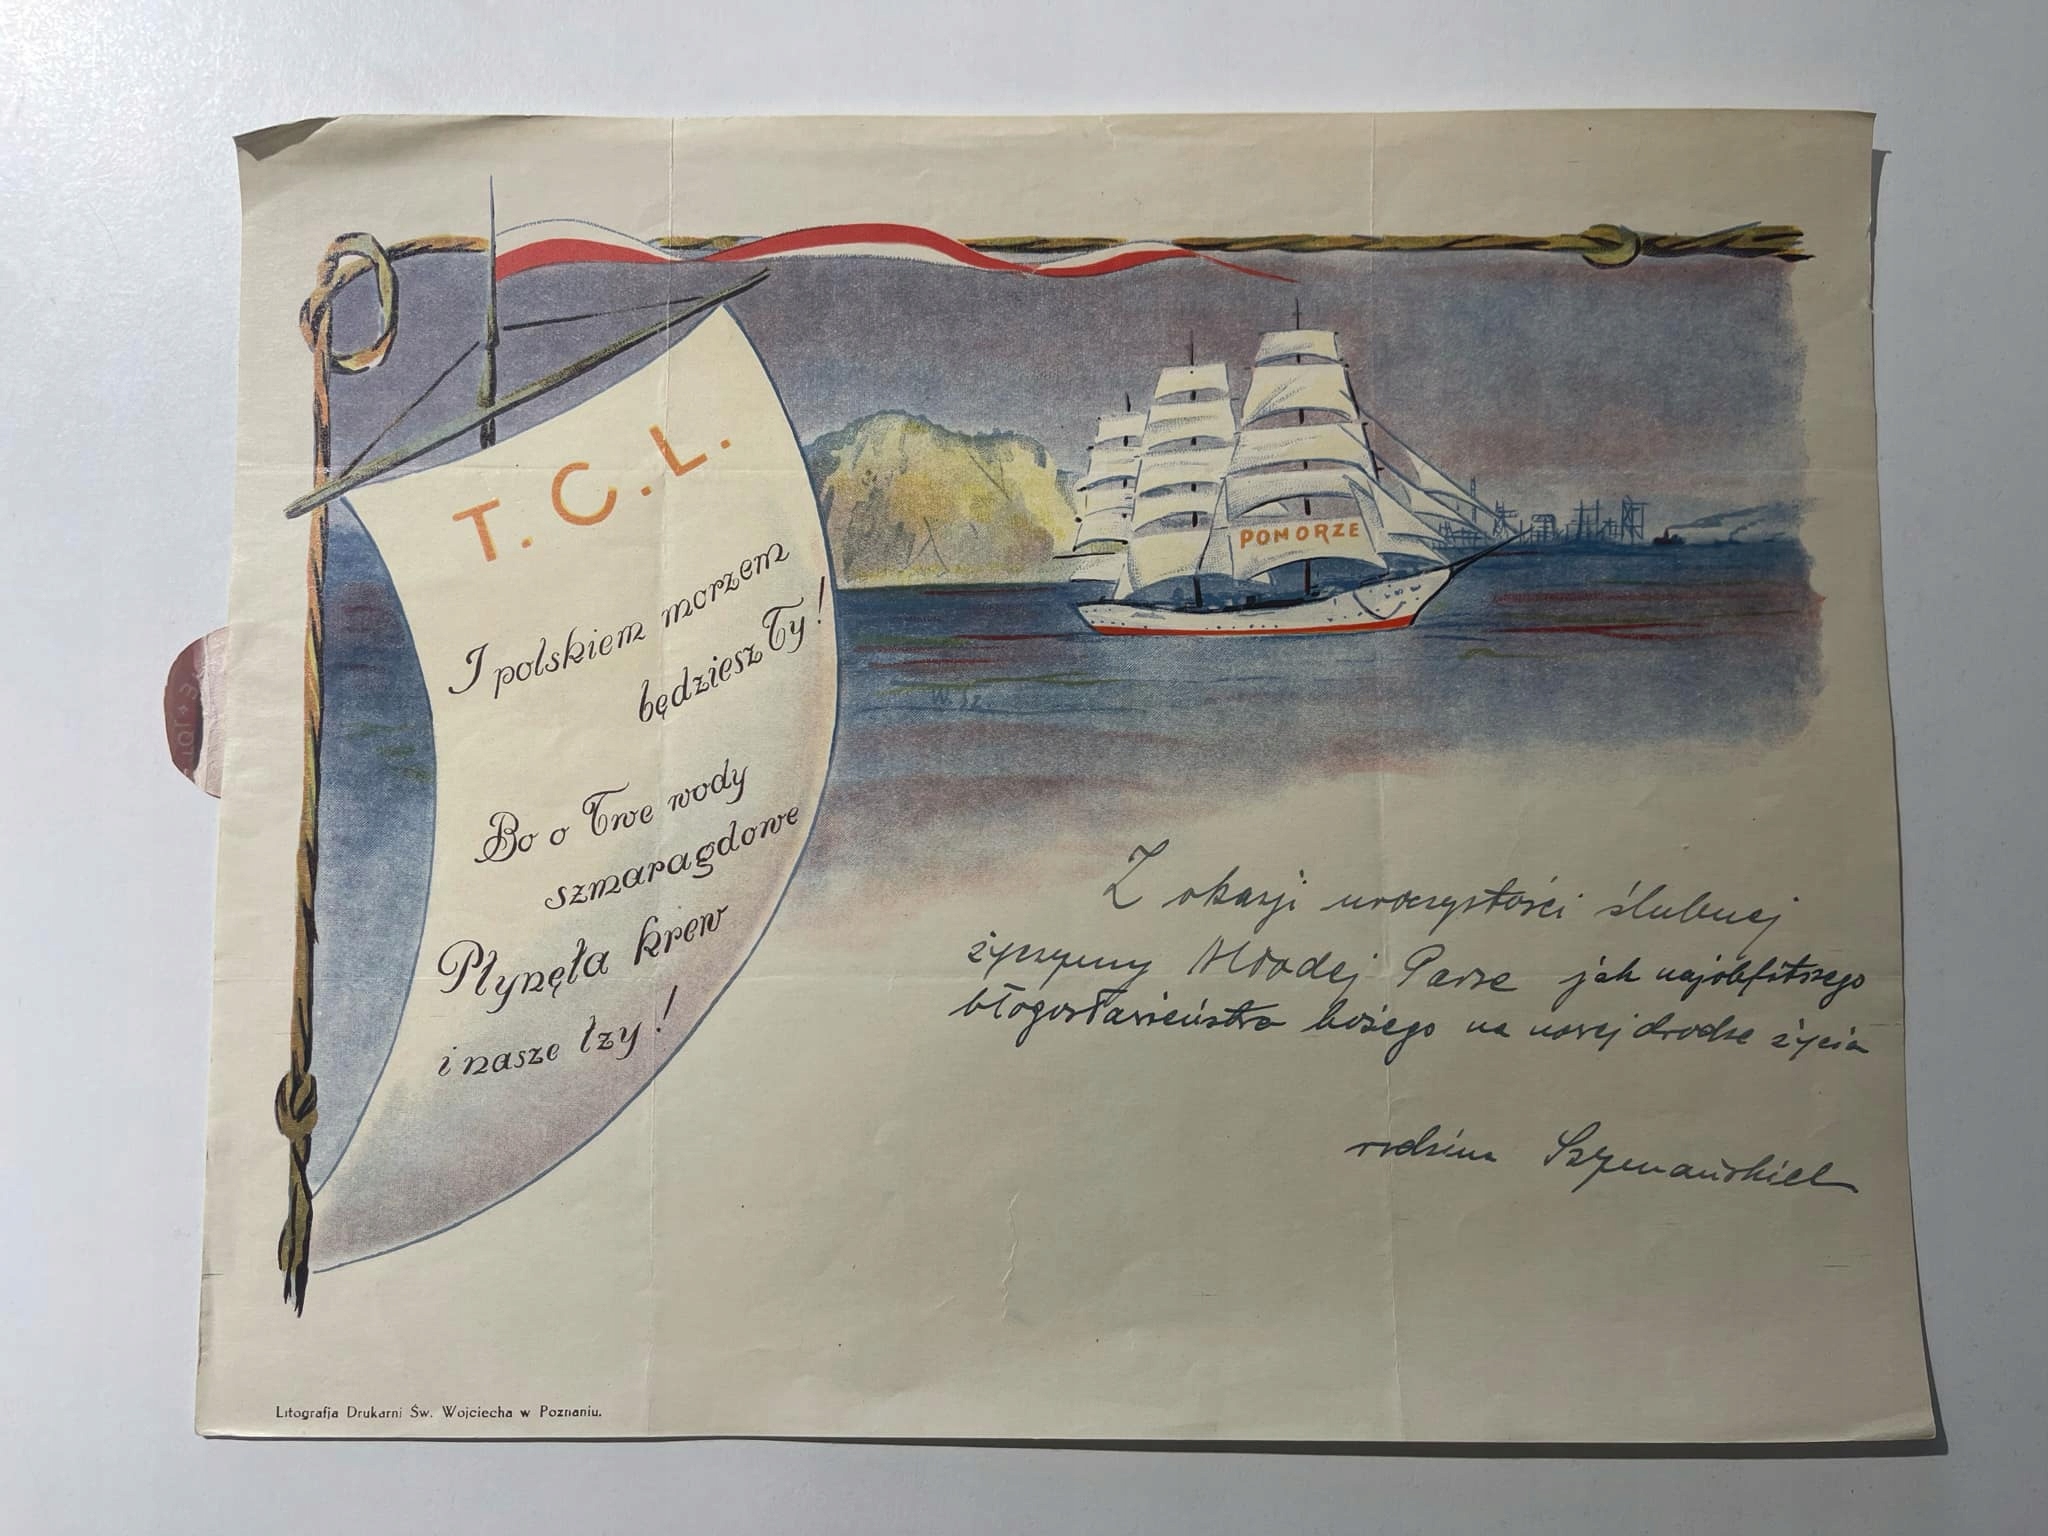 T. C. L.
I polskiem morzem
będziesz Ty!
Bo o Twe wody
szmaragdowe
Płynęła krew
i nasze łzy!
POMORZE
Z okazji uroczystości ślubnej
życzymy Młodej Parze jak najobfitszego
błogosławieństwa bożego na nowej drodze życia
rodzina Szymańskich
Litografja Drukarni Św. Wojciecha w Poznaniu.